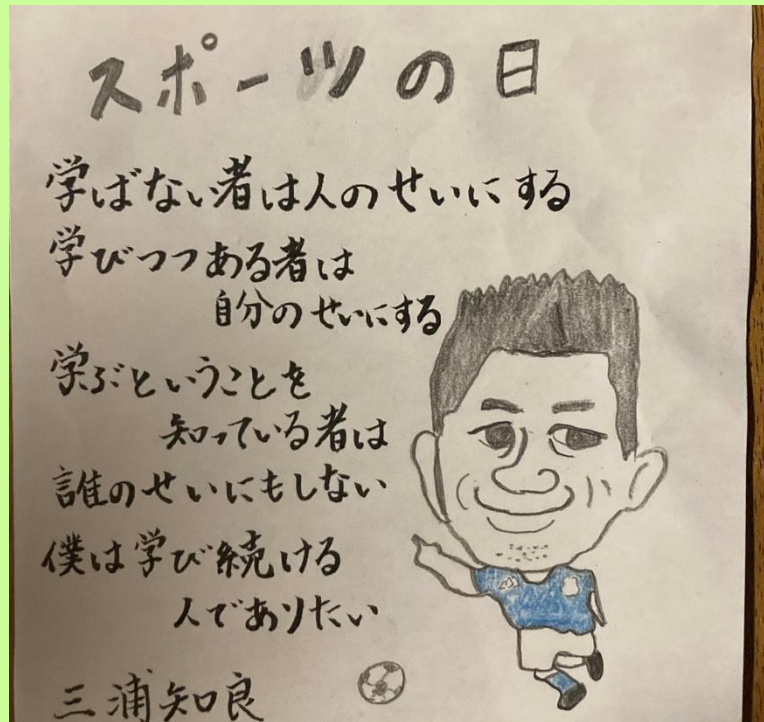 スポーツの日
学ばない者は人のせいにする
学びつつある者は
自分のせいにする
学ぶということを
知っている者は
誰のせいにもしない
僕は学び続ける
人でありたい
三浦知良